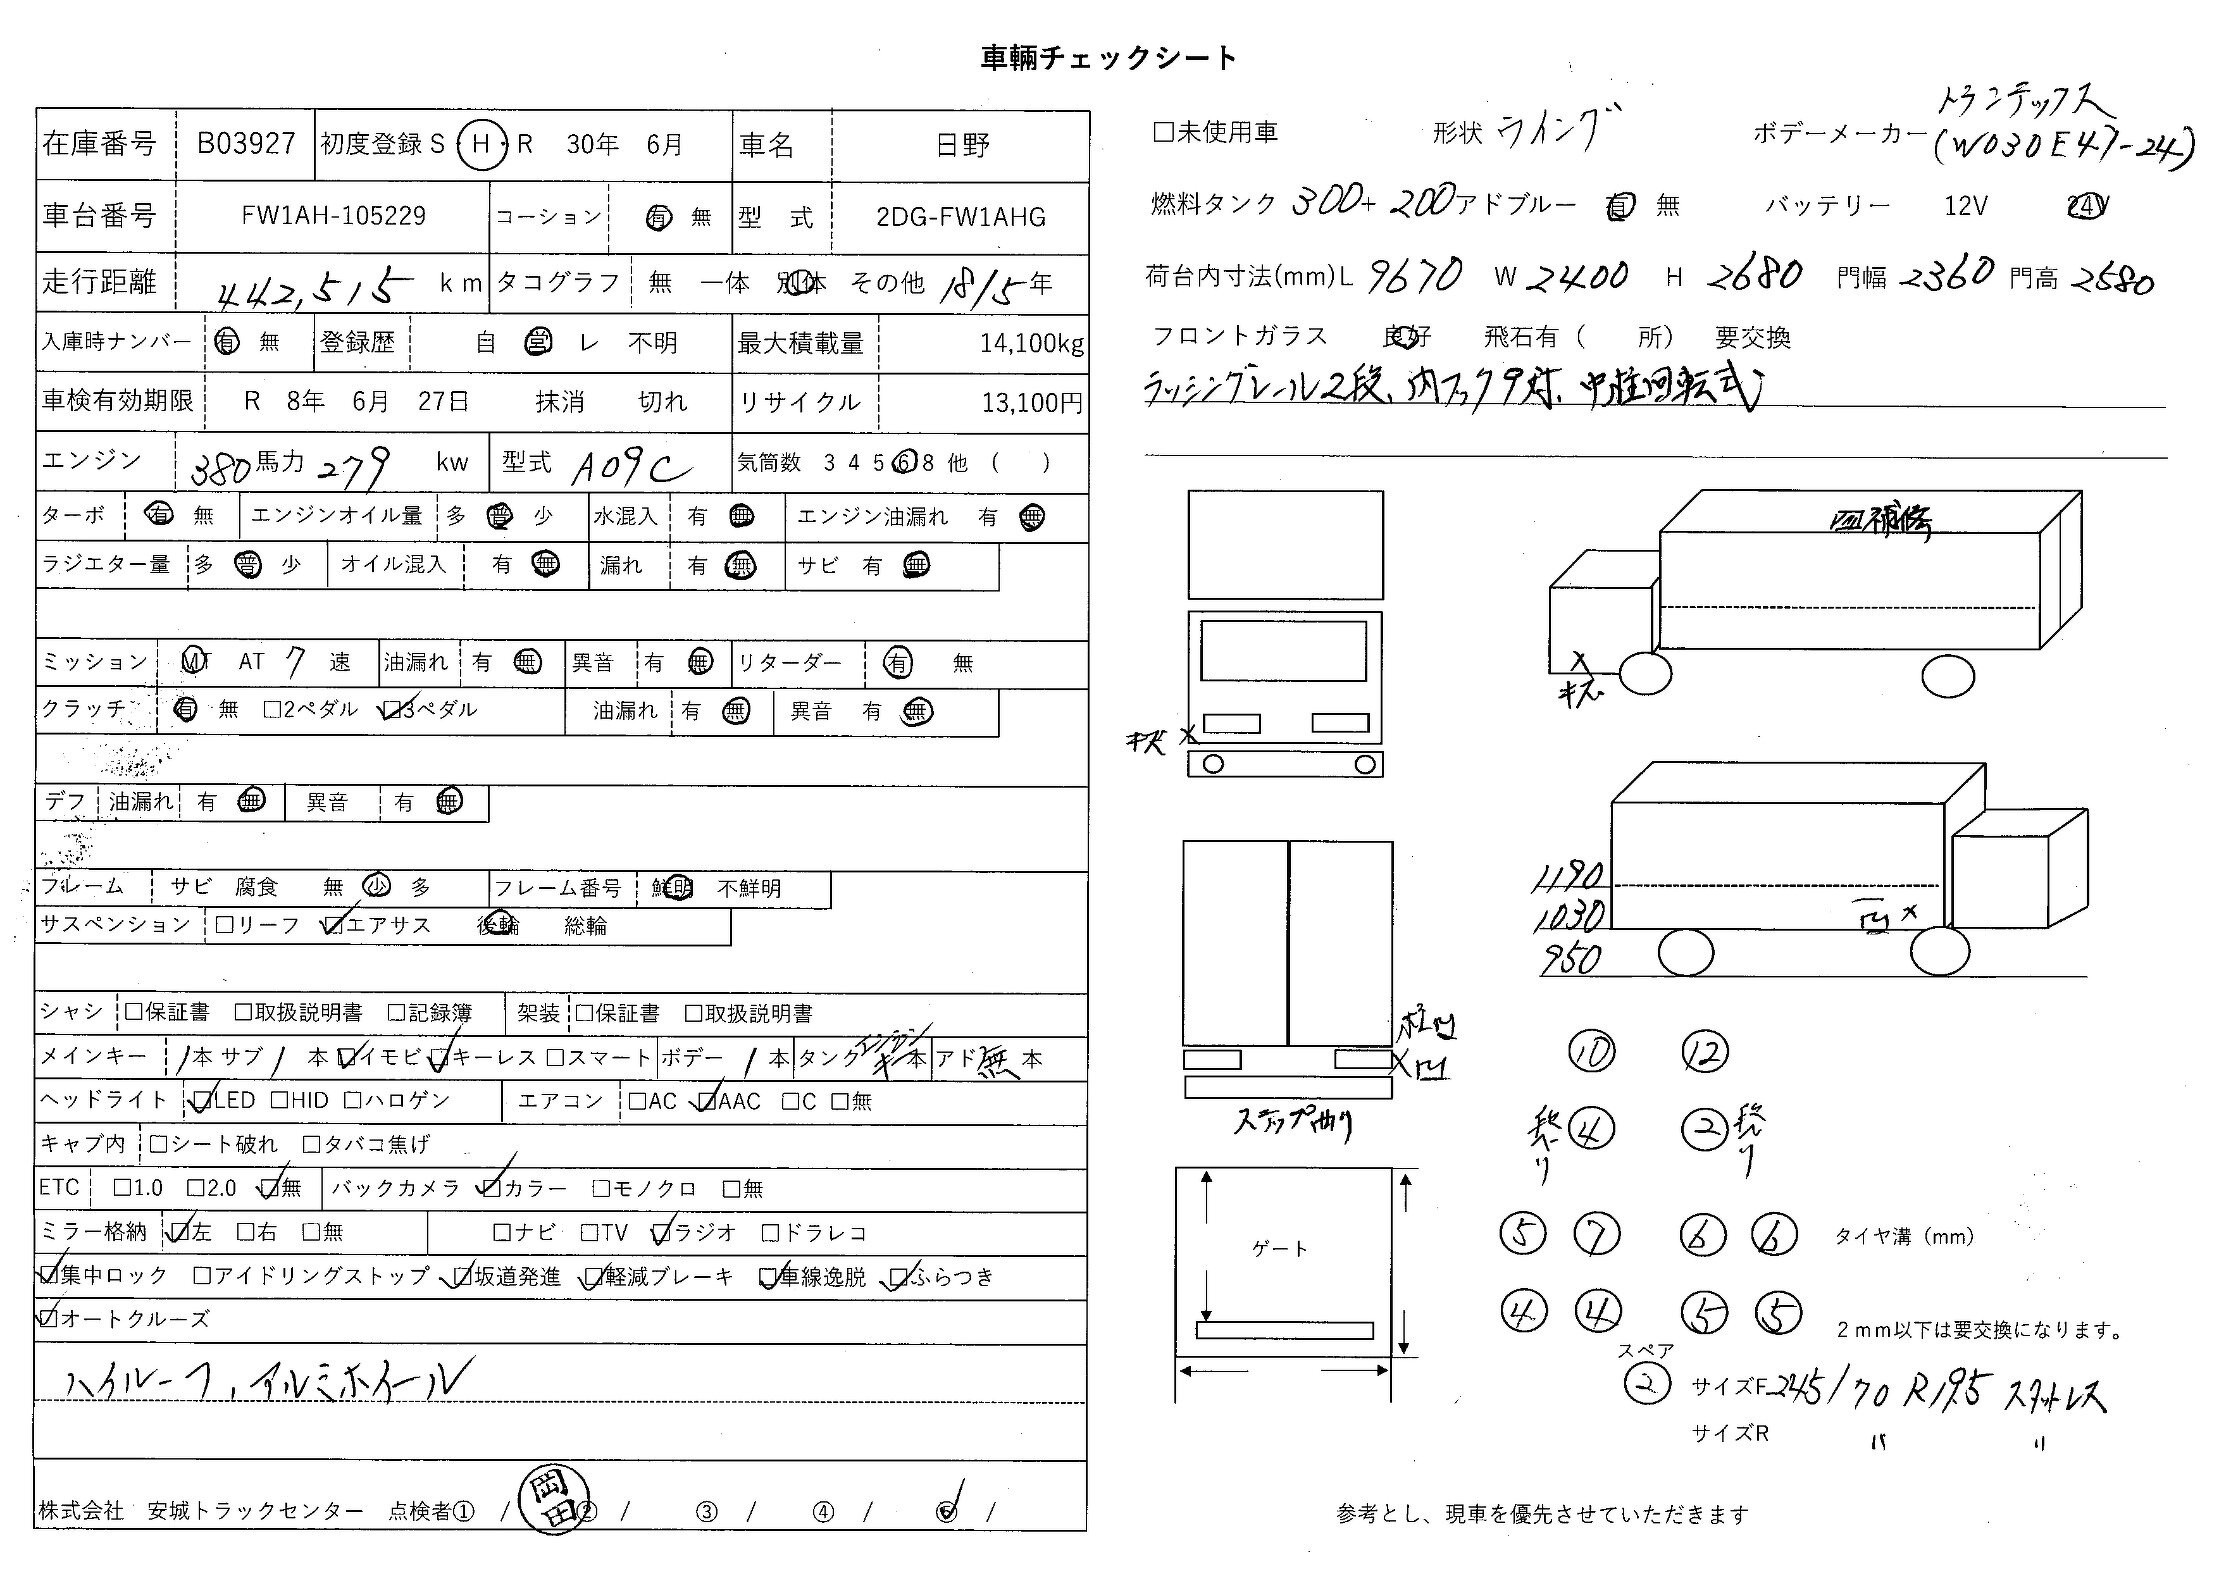 車輛チェックシート
在庫番号 B03927 初度登録 S・H・R 30年 6月 車名 日野
車台番号 FW1AH-105229 コーション 有 無 型 式 2DG-FW1AHG
走行距離 442,515 km タコグラフ 無 一体 別体 その他 18/5年
入庫時ナンバー 有 無 登録歴 自 営 レ 不明 最大積載量 14,100kg
車検有効期限 R 8年 6月 27日 抹消 切れ リサイクル 13,100円
エンジン 380馬力 279 kw 型式 A09C 気筒数 3 4 5 6 8 他 ( )
ターボ 有 無 エンジンオイル量 多 普 少 水混入 有 無 エンジン油漏れ 有 無
ラジエター量 多 普 少 オイル混入 有 無 漏れ 有 無 サビ 有 無
ミッション MT AT 7 速 油漏れ 有 無 異音 有 無 リターダー 有 無
クラッチ 有 無 □2ペダル □3ペダル 油漏れ 有 無 異音 有 無
デフ 油漏れ 有 無 異音 有 無
フレーム サビ 腐食 無 少 多 フレーム番号 鮮明 不鮮明
サスペンション □リーフ □エアサス 後輪 総輪
シャシ □保証書 □取扱説明書 □記録簿 架装 □保証書 □取扱説明書
メインキー 1本 サブ 1 本 □イモビ □キーレス □スマート ボデー 1 本 タンク エンジンキー 本 アド 無 本
ヘッドライト □LED □HID □ハロゲン エアコン □AC □AAC □C □無
キャブ内 □シート破れ □タバコ焦げ
ETC □1.0 □2.0 □無 バックカメラ □カラー □モノクロ □無
ミラー格納 □左 □右 □無 □ナビ □TV □ラジオ □ドラレコ
□集中ロック □アイドリングストップ □坂道発進 □軽減ブレーキ □車線逸脱 □ふらつき
□オートクルーズ
ハイルーフ、アルミホイール
株式会社 安城トラックセンター 点検者① / ② / ③ / ④ / ⑤ /
岡田
□未使用車 形状 ウイング ボデーメーカー トランテックス
(W030E47-24)
燃料タンク 300+200 アドブルー 有 無 バッテリー 12V 24V
荷台内寸法(mm)L 9670 W 2400 H 2680 門幅 2360 門高 2580
フロントガラス 良好 飛石有 ( 所) 要交換
ラッシングレール2段、内フック9対、中柱回転式
凹補修
×
キズ
キズ ×
1190
1030
950
凹 ×
柱凹
×凹
ステップ曲り
ゲート
⑩ ⑫
段べり ④ ② 段べり
⑤ ⑦ ⑥ ⑥ タイヤ溝（mm）
④ ④ ⑤ ⑤ 2mm以下は要交換になります。
スペア
② サイズF 245/70 R19.5 スタットレス
サイズR 〃 〃
参考とし、現車を優先させていただきます